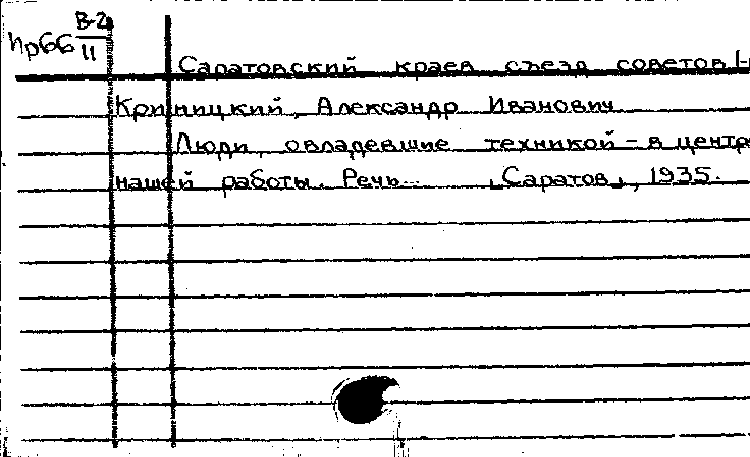 Пр66 В-2
11
Саратовский краев съезд советов I-
Криницкий, Александр Иванович
Люди, овладевшие техникой – в центр
нашей работы. Речь... [Саратов], 1935.